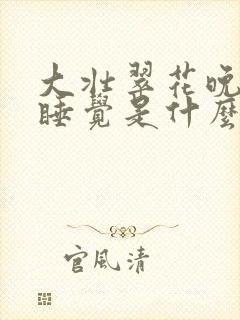 大壮翠花晚
睡覺是什麼
官风清